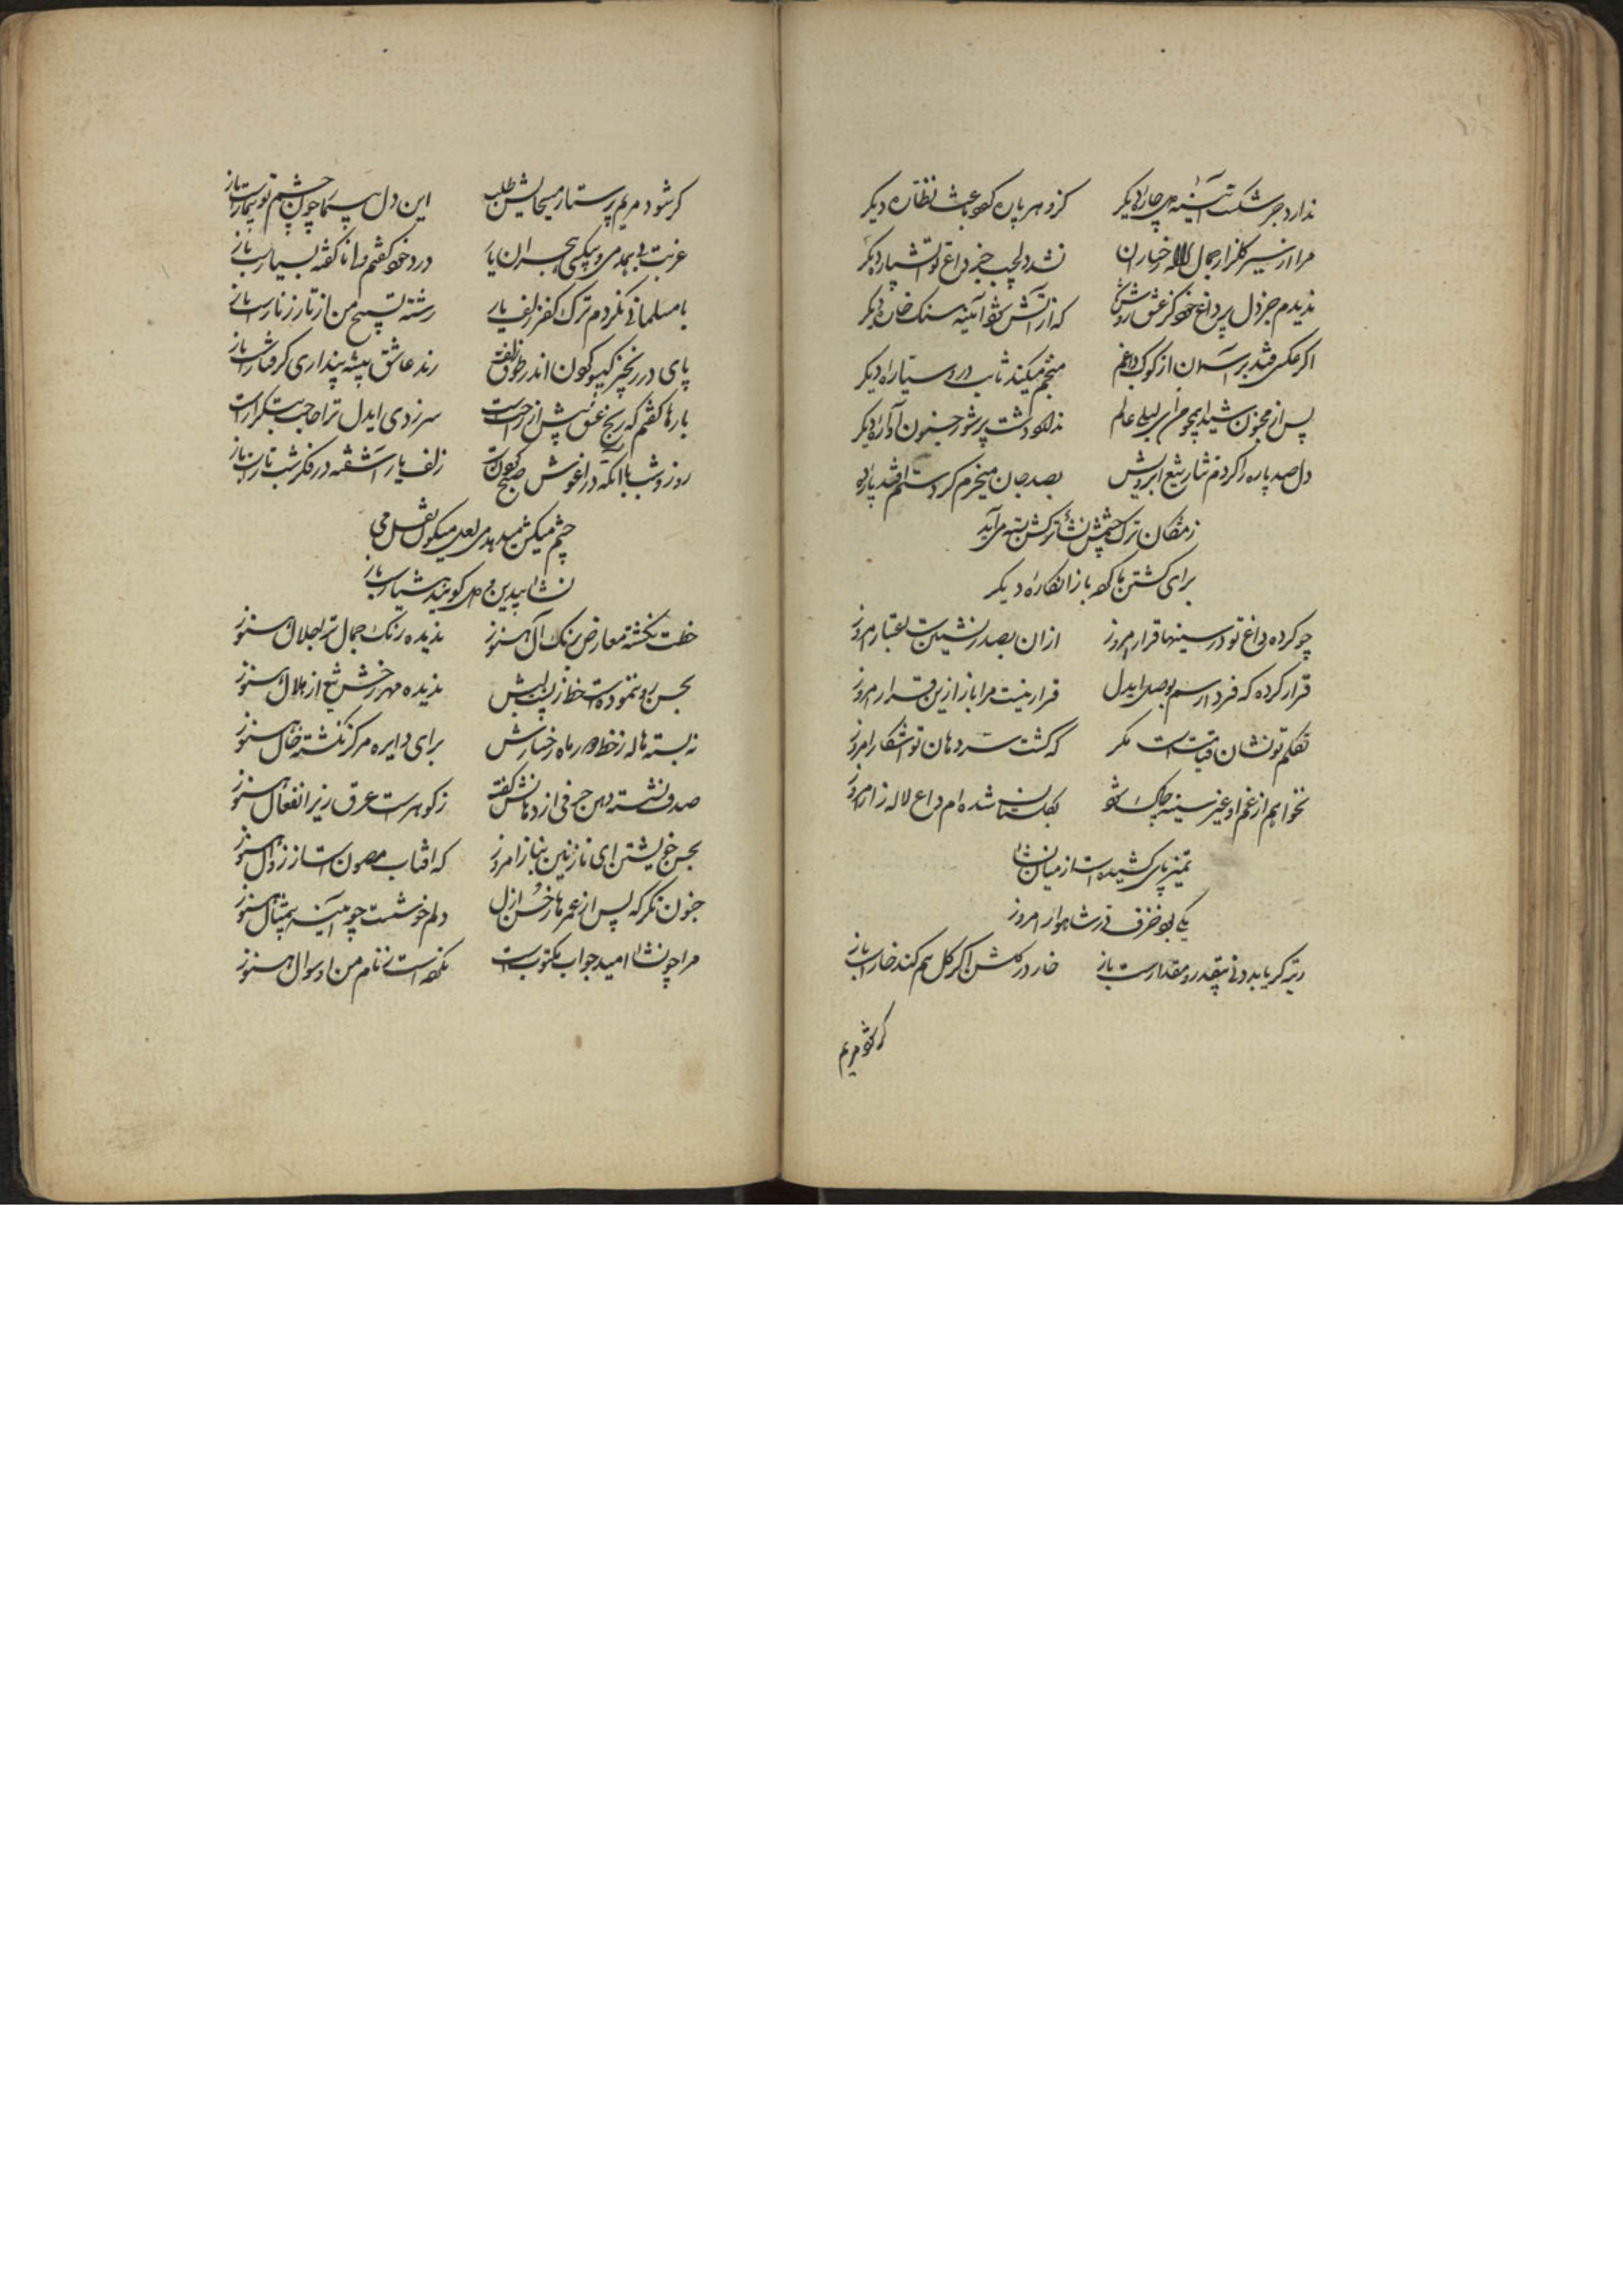 ندارد جز شکست آئینه دل چاره دیگر کزو هر پاره گردد باعث نظاره دیگر
مرا از سیر گلزار جمال لاله رخساران نشد دلچسب جز داغ تو آتشپاره دیگر
ندیدم جز دل پر داغ خود کز عشق که از آتش شود آئینه سنگ خاره دیگر
اگر عکسی فتد بر آسمان از کوکب داغم منجم میکند ثابت در وی سیاره دیگر
پس از مجنون شیدا همچو من بر لیلی عالم ندارد دشت پر شور جنون آواره دیگر
دل صد پاره را کردم نثار تیغ ابرویش بصد جان میخرم گر دستم افتد پاره
زمژگان ترک چشمش نشأ ترکش بسته می آید
برای کشتن ما کرد باز انکاره دیگر
چو کرده داغ تو در سینها قرار امروز ازان بصدر نشین اعتبار امروز
قرار کرده که فردا رسم بوصل ایدل قرار نیست مرا باز ازین قرار امروز
تکلم تو نشان قیامت است مگر که گشت سر دهان تو آشکار امروز
نخواهم از غم او غیر سینه چاک شود بگلستان شده ام داغ لاله زار امروز
تمیز پای کشیده است از میان نشأ
یکی بود خزف و در شاهوار امروز
رتبه گر یابد دنی بیقدر و مقدارست باز خار در گلشن اگر گل هم کند خارست باز
گر شود مریم
گر شود مریم پرستار مسیحا لیش طلب این دل بیمار چون چشم تو بیمارست باز
غربت و بیهمدمی و بیکسی هجران یار درد خود گفتم و ناگفته بسیارست باز
با مسلمانی نکردم ترک کفر زلف یار رشته تسبیح من از تار زنارست باز
پای در زنجیر گیسو گردن اندر طوق زلف رند عاشق پیشه پنداری گرفتارست باز
بارها گفتم که رنج عشق بیش از راحت است سر زدی ایدل ترا حاجت بتکرارست
روز و شب با آنکه در آغوش صبح زلف یار آشفته در فکر شب تارست باز
چشم میکش میدهد می لعل میگون نقل می
نشأ بیدین و دل گویند هشیارست باز
خطت نگشته معارض برنگ آل هنوز ندیده رنگ جمال ترا جلال هنوز
بحسن رو ننموده است خط زپشت لبش ندیده مهر رخش تیغ از هلال هنوز
نه بسته هاله زخط دور ماه رخسارش برای دایره مرکز نگشته خال هنوز
صدف نشسته دهن حرفی از دهانش گفته زگوهرست عرق ریز انفعال هنوز
بحسن خویشتن ای نازنین بناز امروز که آفتاب مصون است از زوال هنوز
جنون نگر که پس از عمرها زحسن ازل دلم خوشست چو آئینه با مثال هنوز
مرا چو نشأ امید جواب مکتوبست نکرده است زنام من او سوال هنوز